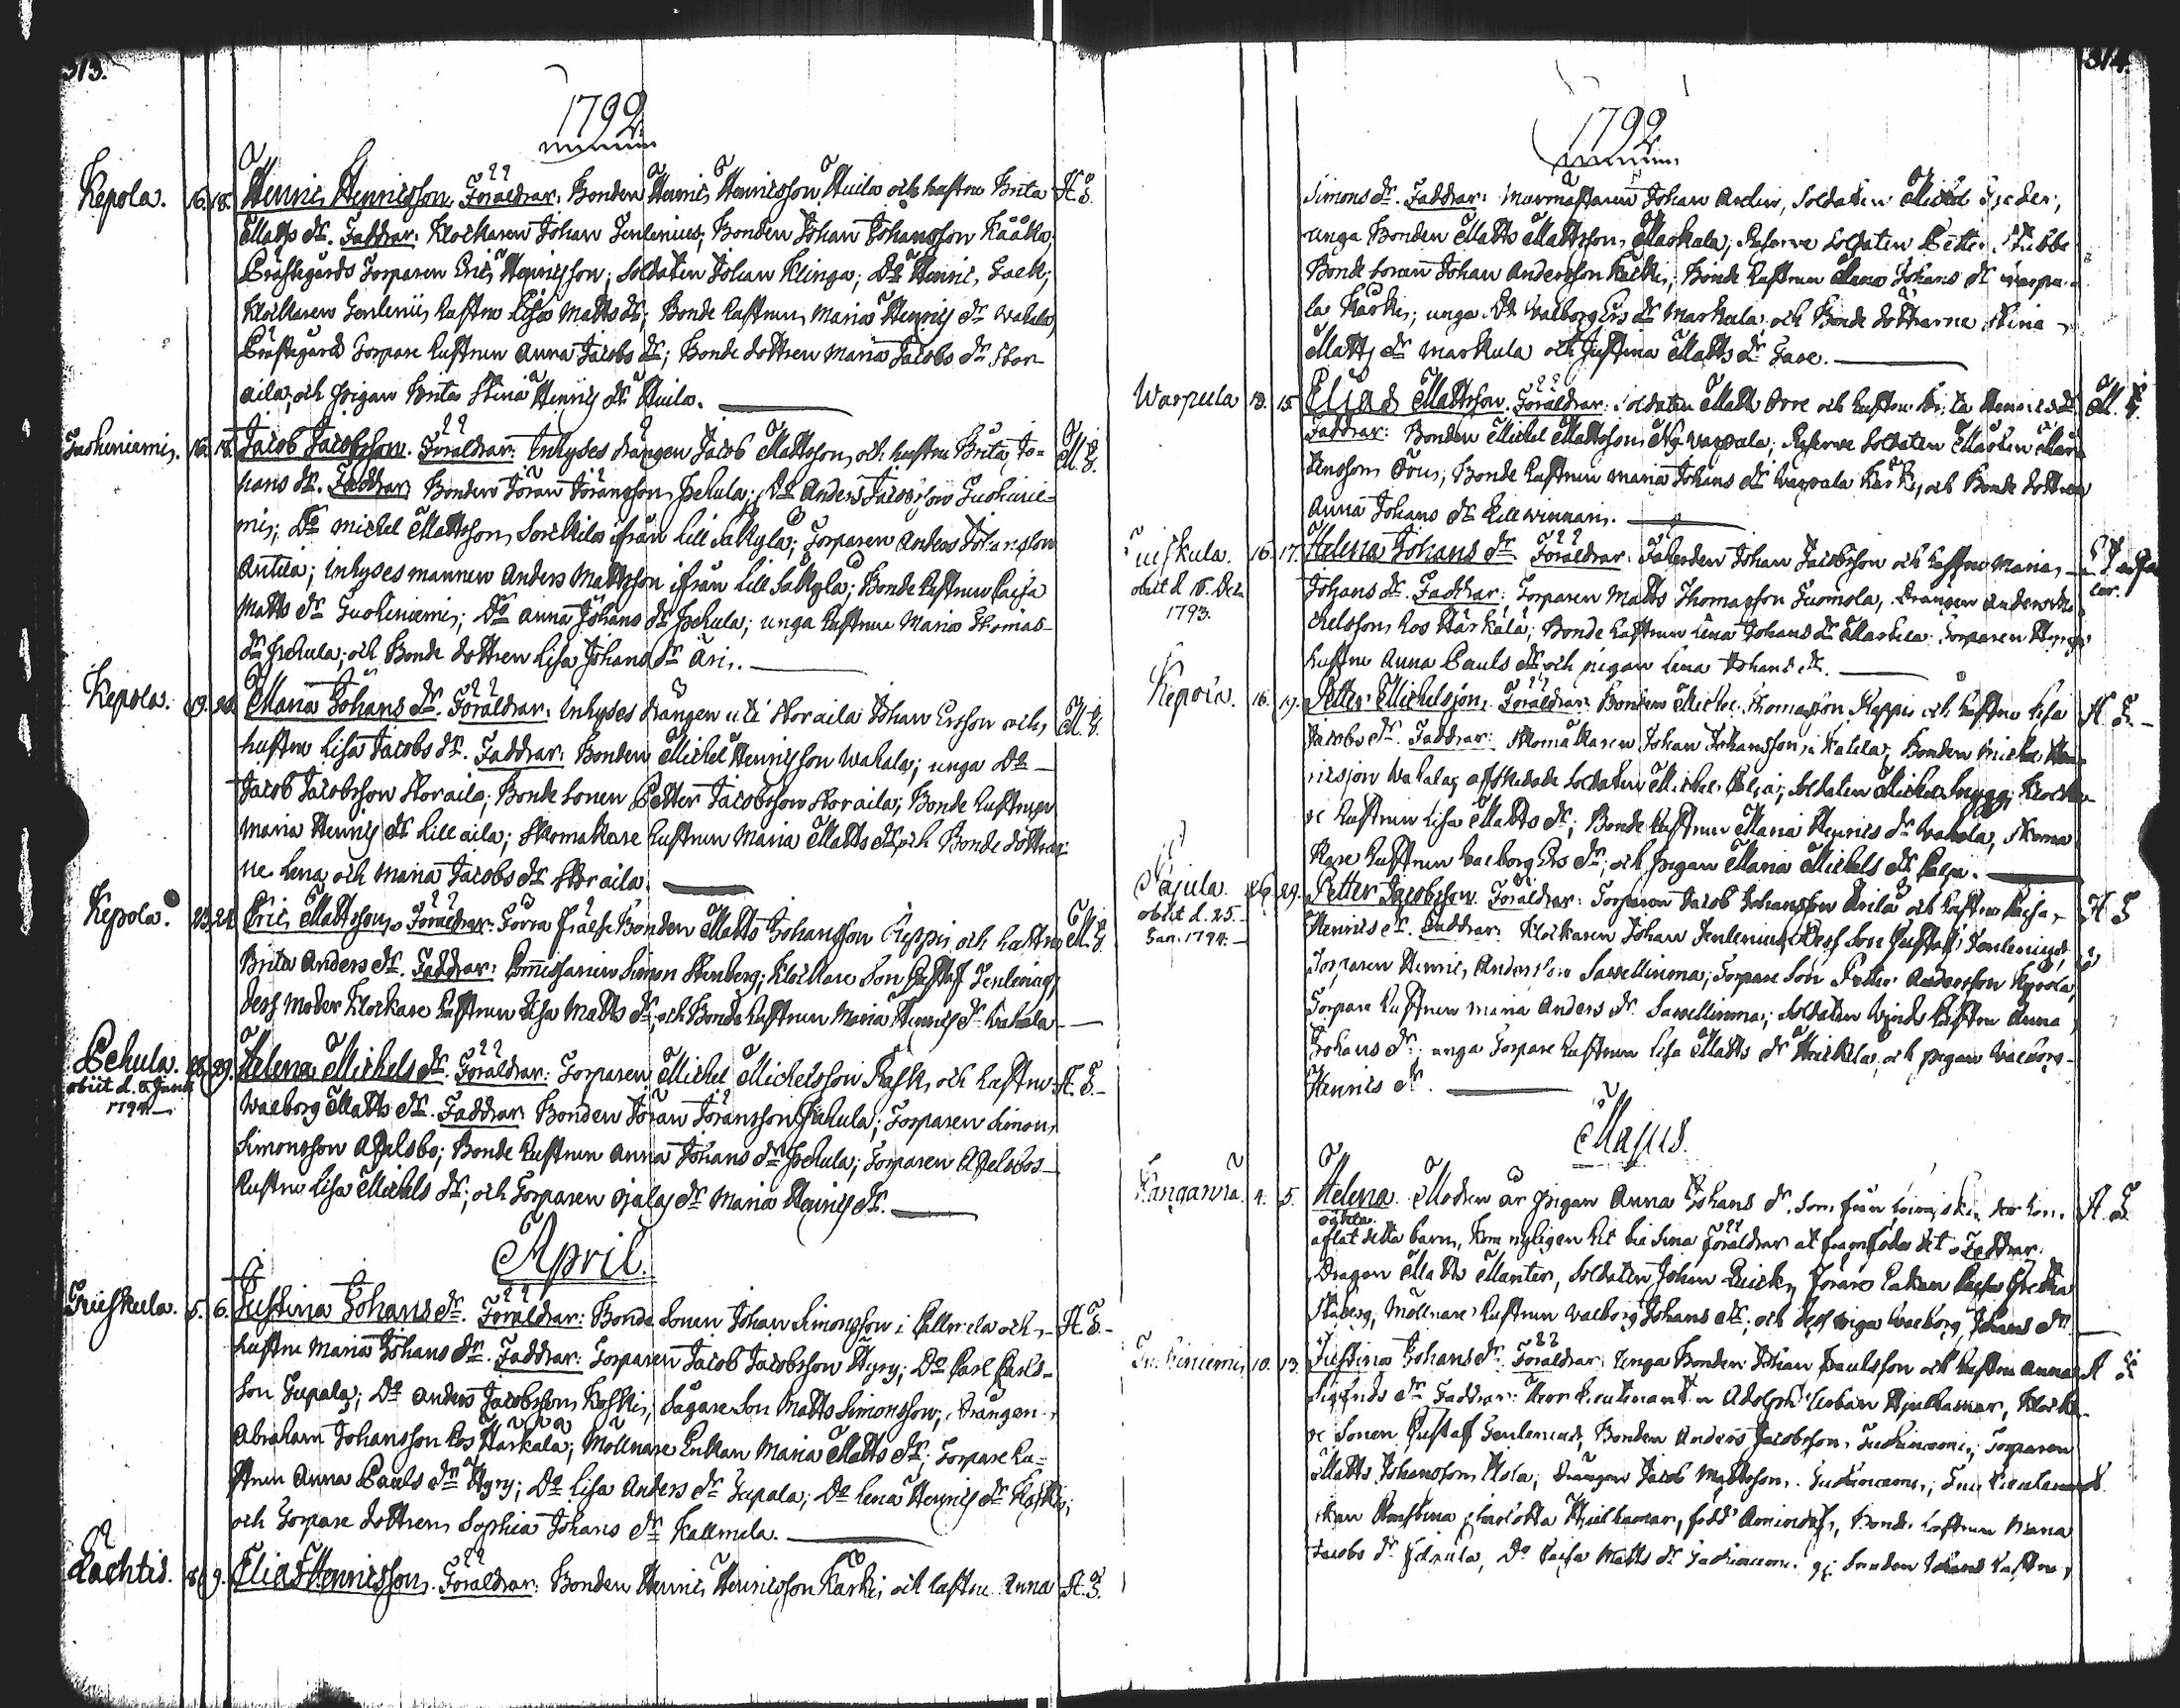 313.
1792
Kepola. 16. 18. Henric Henricsson. Föräldrar: Bonden Henric Henricsson Huila och hustru Brita A. S.
Matts dr. Faddrar: Klockaren Johan Tenlenius; Bonden Johan Johansson Kååla;
Prästgårds Torparen Eric Henricsson; Soldaten Johan Klinga; Do Henric Tack;
Klockaren Tenlenii hustru Lisa Matts dr; Bonde hustrun Maria Henrics dr Wahala,
Prästegårds Torpare hustrun Anna Jacobs dr; Bonde dottren Maria Jacobs dr Stor
aila, och pigan Brita Stina Henrics dr Huila.
Suoheniemi. 16. 18. Jacob Jacobsson. Föräldrar: Inhyses drängen Jacob Mattsson och hustru Brita Jo- M. S.
hans dr. Faddrar: Bonden Jöran Jöransson Pehula; Do Anders Jacobsson Suohenie-
mi; Do Michel Mattsson Sorckila ifrån Lill Säkylä; Torparen Anders Johansson
Antila; Inhyses mannen Anders Mattsson ifrån Lill Säkylä; Bonde hustrun Caisa
Matts dr Suoheniemi; Do Anna Johans dr Pehula; unga hustrun Maria Thomas
dr Pehula; och Bonde dottren Lisa Johans dr Äri.
Kepola. 19. 20. Maria Johans dr. Föräldrar: Inhyses drängen uti Storaila Johan Ersson och M. S.
hustru Lisa Jacobs dr. Faddrar: Bonden Michel Henricsson Wahala; unga Do
Jacob Jacobsson Storaila; Bonde sonen Petter Jacobsson Storaila; Bonde hustrun
Maria Henrics dr Lillaila; Skomakare hustrun Maria Matts dr och Bonde döttrar
ne Lena och Maria Jacobs dr Storaila.
Kepola. 23. 24. Eric Mattsson. Föräldrar: Förra frälse Bonden Matts Johansson Seppä och hustru M. S.
Brita Anders dr. Faddrar: Commissarien Simon Stenberg; Klockare Son Gustaf Tenlenius;
dess moder Klockare hustrun Lisa Matts dr, och Bonde hustrun Maria Henrics dr Wahala
Pehula. 28. 29. Helena Michels dr. Föräldrar: Torparen Michel Michelsson Rask, och hustru A. S.
obiit d. Junii
1794.
Walborg Matts dr. Faddrar: Bonden Jöran Jöransson Pehula; Torparen Simon
Simonsson Apelsbo; Bonde hustrun Anna Johans dr Pehula; Torparen Apelsbos
hustru Lisa Michels dr; och Torparen Ojalas dr Maria Henrics dr.
April.
5. 6. Justina Johans dr. Föräldrar: Bonde sonen Johan Simonsson i Kallmela och A. S.
hustru Maria Johans dr. Faddrar: Torparen Jacob Jacobsson Hyry; Do Carl Carls-
son Tupala; Do Anders Jacobsson Koski; Sågare Son Matts Simonsson; drängen
Abraham Johansson hos Härkälä; Möllnare Enkan Maria Matts dr; Torpare hu-
strun Anna Pauls dr Hyry; Do Lisa Anders dr Tupala; Do Lena Henrics dr Koski;
och Torpare dottren Sophia Johans dr Kallmela.
Lachtis. 8. 9. Elias Henricsson. Föräldrar: Bonden Henric Henricsson Karki och hustru Anna A. S.
314.
1792
Simons dr. Faddrar: Murmästaren Johan Ardin, Soldaten Michel Fjeder,
unga Bonden Matts Mattsson Markula; Reserve Soldaten Petter Stubbe
Bonde sonen Johan Andersson Karki; Bonde hustrun Maria Johans dr Warpu-
la Karki; unga Do Walborg Ers dr Markula och Bonde döttrarne Stina
Matts dr Markula och Justina Matts dr Tare.
Warpula 13. 15. Elias Mattsson. Föräldrar: Soldaten Matts Orre och hustru Brita Henrics dr. M. S.
Faddrar: Bonden Michel Mattsson Warpula; Reserve Soldaten Mårten Mår
tensson Örn; Bonde hustrun Maria Johans dr Warpula Karki, och Bonde dottren
Anna Johans dr Lillwinnari.
16. 17. Helena Johans dr. Föräldrar: Johan Jacobsson och hustru Maria
obiit d. 18. Dec.
1793.
Johans dr. Faddrar: Torparen Matts Thomasson Tuomola, Drängen Anders Mi
chelsson hos Härkälä; Bonde hustrun Lena Johans dr Markula Torparen
hustru Anna Pauls dr och pigan Lena Johans dr.
Kepola. 16. 19. Petter Michelsson. Föräldrar: Bonden Michel Thomasson Seppä och hustru Lisa A. S.
Jacobs dr. Faddrar: Skomakaren Johan Johansson i Kahila; Bonden Michel Hen
ricsson Wahala; afskedade Soldaten Michel Palja; Soldaten Michel Klocka
re hustrun Lisa Matts dr; Bonde hustrun Maria Henrics dr Wahala, Skoma
kare hustrun Walborg Ers dr; och pigan Maria Michels dr Palja.
Pajula. 26. 29. Petter Jacobsson. Föräldrar: Torparen Jacob Johansson Anila och hustru Caisa A. S.
obiit d. 25.
Jan. 1794.
Henrics dr. Faddrar: Klockaren Johan Tenlenius, dess son Gustaf Tenlenius;
Torparen Henric Andersson Sawellinma; Torpare Son Petter Andersson
Torpare hustrun Maria Anders dr Sawellinma; Soldaten hustru Anna
Johans dr; unga Torpare hustrun Lisa Matts dr och pigan Walborg
Henrics dr.
Majus.
Kanganra. 4. 5. Helena. Modren är pigan Anna Johans dr, som A. S.
oäkta.
aflat detta barn, kom nyligen hit til sina föräldrar at framföda det. Faddrar:
Dragon Matts Manter, Soldaten Johan Quick,
Möllnare hustrun Walborg Johans dr; och Walborg Johans dr
Suoheniemi 10. 13. Justina Johans dr. Föräldrar: Unga Bonden Johan Paulsson och hustru Anna A. S.
Sigfrids dr. Faddrar: Herr Lieutenanten Adolph Urban Hjulhammar, Klocka
re sonen Gustaf Tenlenius, Bonden Anders Jacobsson Suoheniemi; Torparen
Matts Johansson Isola, drängen Jacob Mattsson Suoheniemi; Fru Lieutenant
skan Christina Charlotta Hjulhammar, född Bonde hustrun Maria
Jacobs dr Pehula, Do Caisa Matts dr Suoheniemi